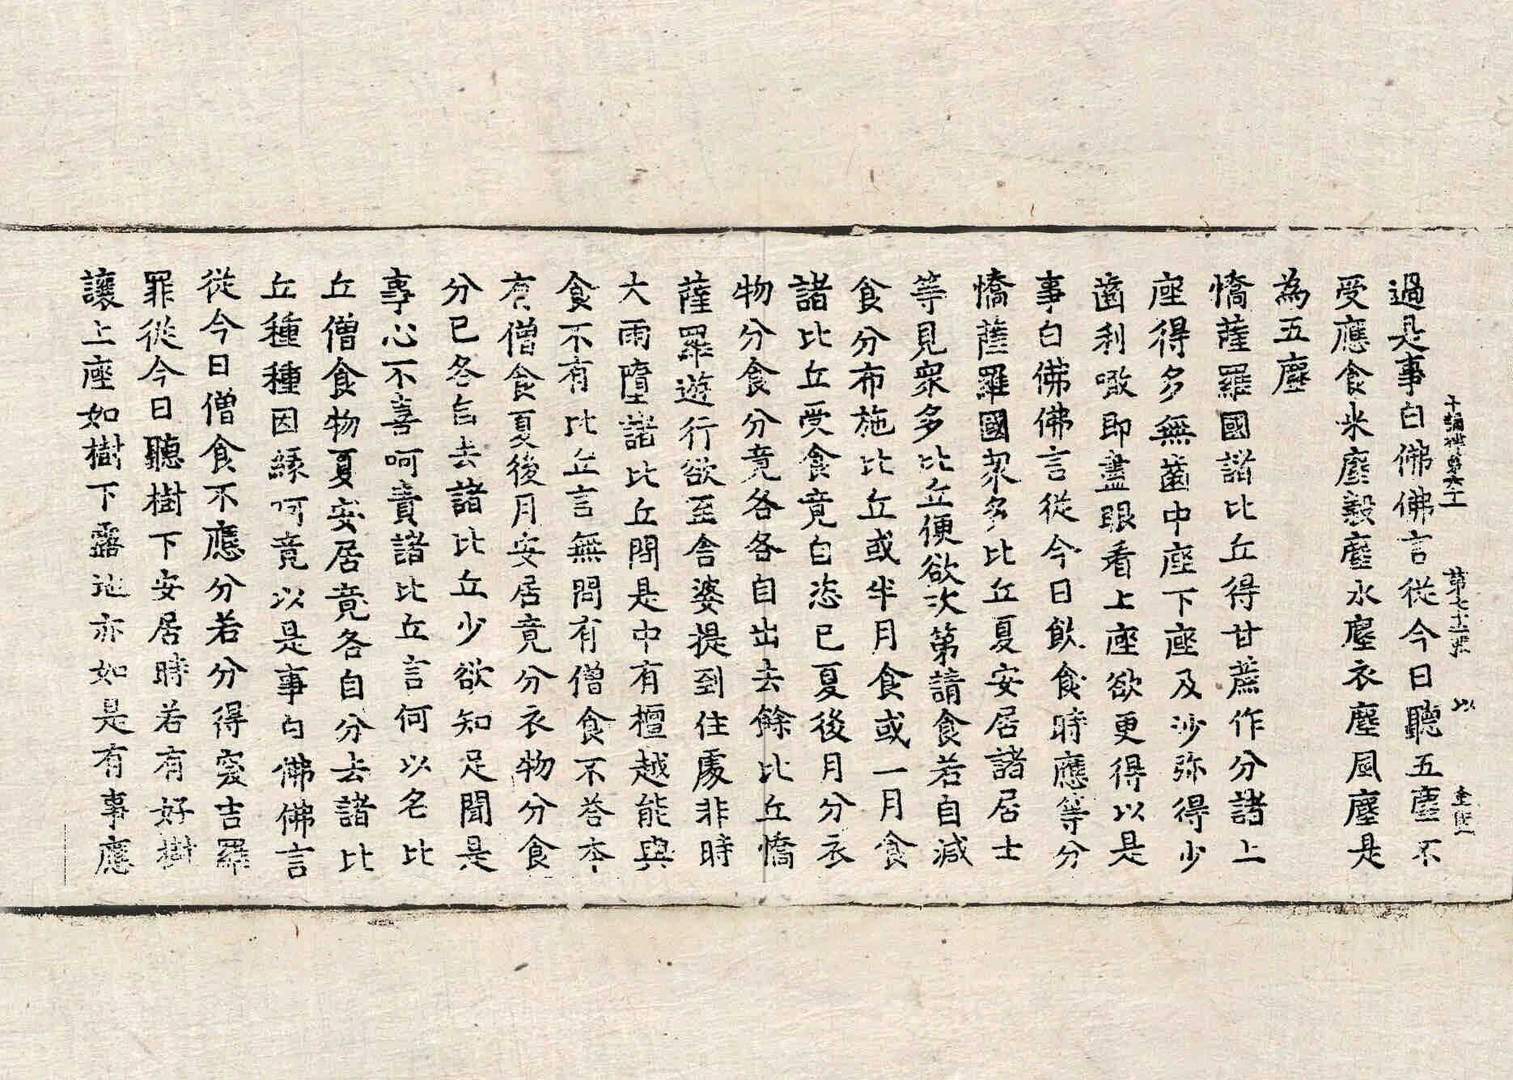 過是事白佛佛言從今日聽五塵不
受應食米塵穀塵水塵衣塵風塵是
為五塵
憍薩羅國諸比丘得甘蔗作分諸上
座得多無齒中座下座及沙弥得少
齒利噉即盡眼看上座欲更得以是
事白佛佛言從今日飲食時應等分
憍薩羅國衆多比丘夏安居諸居士
等見衆多比丘便欲次第請食若自減
食分布施比丘或半月食或一月食
諸比丘受食竟自恣已夏後月分衣
物分食分竟各各自出去餘比丘憍
薩羅遊行欲至舍婆提到住處非時
大雨墮諸比丘問是中有檀越能與
食不有比丘言無問有僧食不荅本
有僧食夏後月安居竟分衣物分食
分已各自去諸比丘少欲知足聞是
事心不喜呵責諸比丘言何以名比
丘僧食物夏安居竟各自分去諸比
丘種種因緣呵竟以是事白佛佛言
從今日僧食不應分若分得突吉羅
罪從今日聽樹下安居時若有好樹
讓上座如樹下露地亦如是有事應